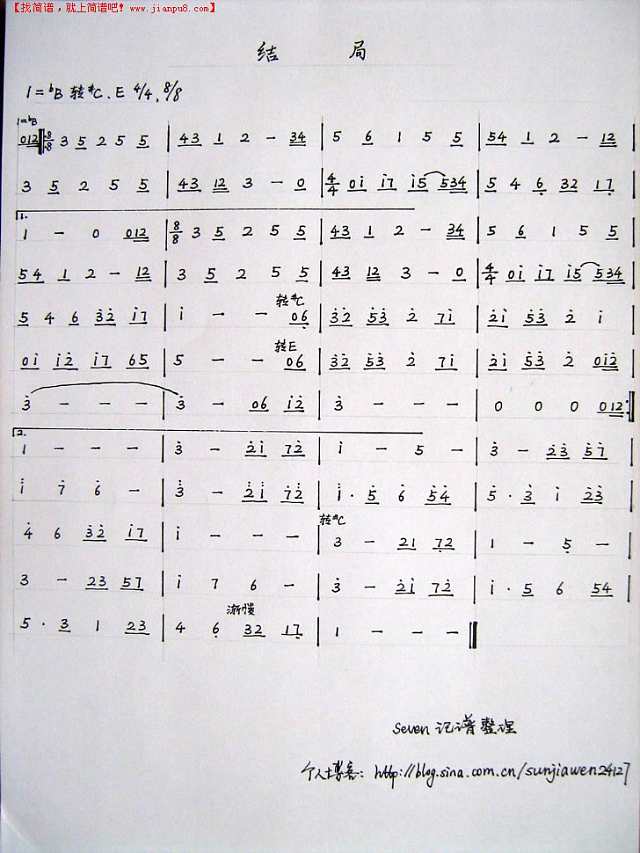 【找简谱，就上简谱吧! www.jianpu8.com】
结 局
1=ᵇB 转#C、E 4/4, 8/8
1=ᵇB
012 8/8 3 5 2 5 5 | 43 1 2 - 34 | 5 6 1 5 5 | 54 1 2 - 12 |
3 5 2 5 5 | 43 12 3 - 0 | 4/4 0i i7 i5 534 | 5 4 6 32 17 |
1.
1 - 0 012 | 8/8 3 5 2 5 5 | 43 1 2 - 34 | 5 6 1 5 5 |
54 1 2 - 12 | 3 5 2 5 5 | 43 12 3 - 0 | 4/4 0i i7 i5 534 |
转#C
5 4 6 32 i7 | i - - 06 | 32 53 2 7i | 2i 53 2 i |
转E
0i i2 i7 65 | 5 - - 06 | 32 53 2 7i | 2i 53 2 012 |
3 - - - | 3 - 06 i2 | 3 - - - | 0 0 0 012 :|
2.
1 - - - | 3 - 2i 72 | i - 5 - | 3 - 23 57 |
i 7 6 - | 3 - 2i 72 | i · 5 6 54 | 5 · 3 i 23 |
转#C
4 6 32 i7 | i - - - | 3 - 21 72 | 1 - 5 - |
3 - 23 57 | i 7 6 - | 3 - 2i 72 | i · 5 6 54 |
渐慢
5 · 3 1 23 | 4 6 32 17 | 1 - - - ||
Seven 记谱整理
个人博客: http://blog.sina.com.cn/sunjiawen24127